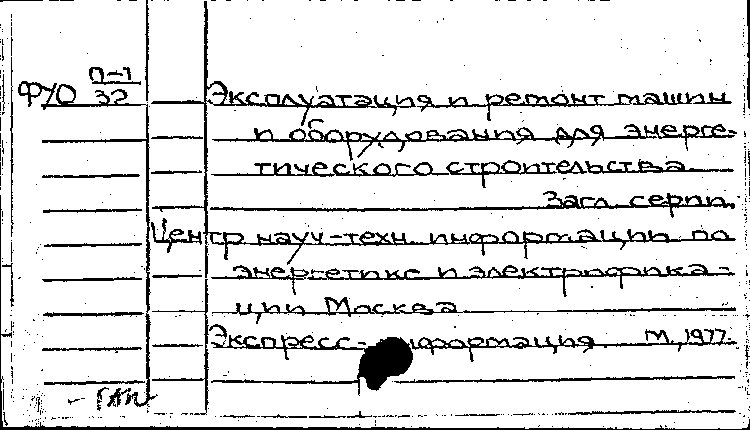 ФУО П-1/32
Эксплуатация и ремонт машин
и оборудования для энерге-
тического строительства
Загл. серии.
Центр науч-техн. информации по
энергетике и электрофика-
ции Москва
Экспресс-информация. М., 1977.